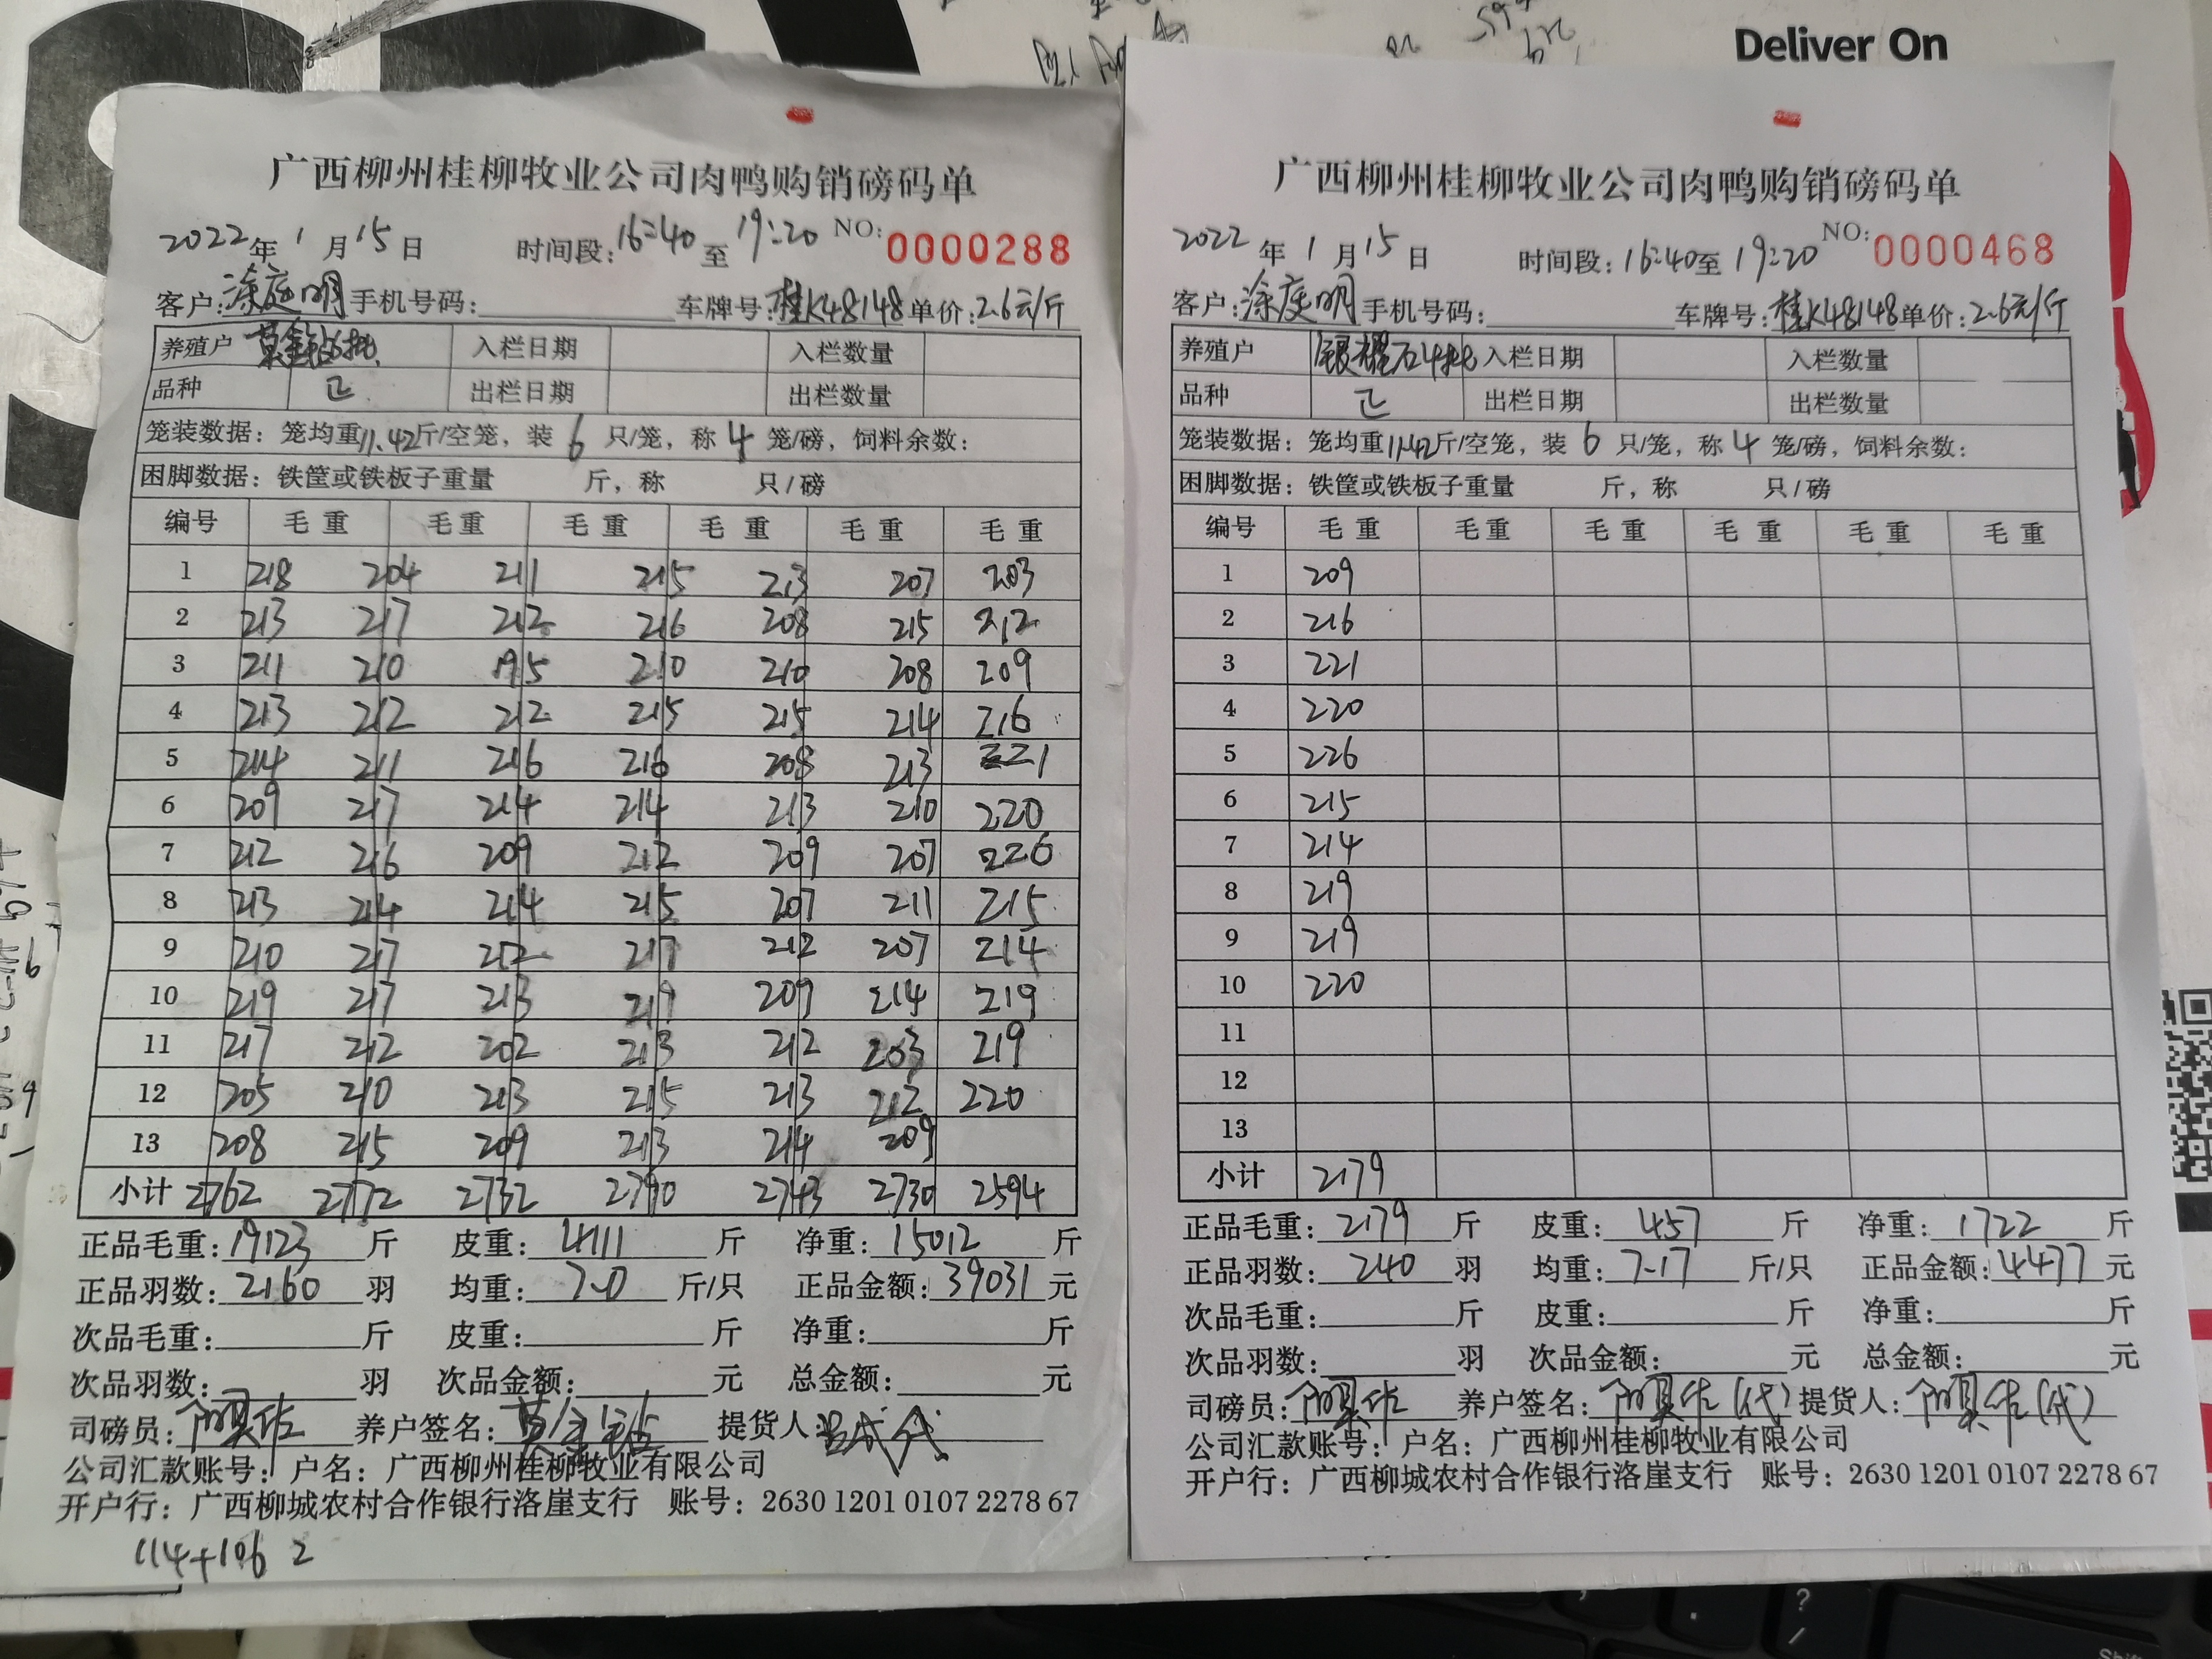 Deliver On
广西柳州桂柳牧业公司肉鸭购销磅码单
2022年1月15日 时间段:16:40至19:20 NO:0000288
客户:涂庭明 手机号码: 车牌号:桂K48148 单价:2.6元/斤
养殖户 莫金钻6批 入栏日期 入栏数量
品种 乙 出栏日期 出栏数量
笼装数据:笼均重11.42斤/空笼,装6只/笼,称4笼/磅,饲料余数:
困脚数据:铁筐或铁板子重量 斤,称 只/磅
编号 毛重 毛重 毛重 毛重 毛重 毛重
1 218 204 211 215 213 207 203
2 213 217 212 216 208 215 212
3 211 210 195 210 210 208 209
4 213 212 212 215 215 214 216
5 214 211 216 216 208 213 221
6 209 217 214 214 213 210 220
7 212 216 209 212 209 207 226
8 213 214 214 215 207 211 215
9 210 217 212 217 212 207 214
10 219 217 213 219 209 214 219
11 217 212 202 213 212 203 219
12 205 210 213 215 213 212 220
13 208 215 209 213 214 209
小计 2762 2772 2732 2790 2743 2730 2594
正品毛重:19123斤 皮重:4111斤 净重:15012斤
正品羽数:2160羽 均重:7.0斤/只 正品金额:39031元
次品毛重: 斤 皮重: 斤 净重: 斤
次品羽数: 羽 次品金额: 元 总金额: 元
司磅员: 养户签名:莫金钻 提货人:
公司汇款账号:户名:广西柳州桂柳牧业有限公司
开户行:广西柳城农村合作银行洛崖支行 账号:2630 1201 0107 2278 67
114+106 2
广西柳州桂柳牧业公司肉鸭购销磅码单
2022年1月15日 时间段:16:40至19:20 NO:0000468
客户:涂庭明 手机号码: 车牌号:桂K48148 单价:2.6元/斤
养殖户 银耀石4批 入栏日期 入栏数量
品种 乙 出栏日期 出栏数量
笼装数据:笼均重11.42斤/空笼,装6只/笼,称4笼/磅,饲料余数:
困脚数据:铁筐或铁板子重量 斤,称 只/磅
编号 毛重 毛重 毛重 毛重 毛重 毛重
1 209
2 216
3 221
4 220
5 226
6 215
7 214
8 219
9 219
10 220
11
12
13
小计 2179
正品毛重:2179斤 皮重:457斤 净重:1722斤
正品羽数:240羽 均重:7.17斤/只 正品金额:4477元
次品毛重: 斤 皮重: 斤 净重: 斤
次品羽数: 羽 次品金额: 元 总金额: 元
司磅员: 养户签名:(代) 提货人:(代)
公司汇款账号:户名:广西柳州桂柳牧业有限公司
开户行:广西柳城农村合作银行洛崖支行 账号:2630 1201 0107 2278 67